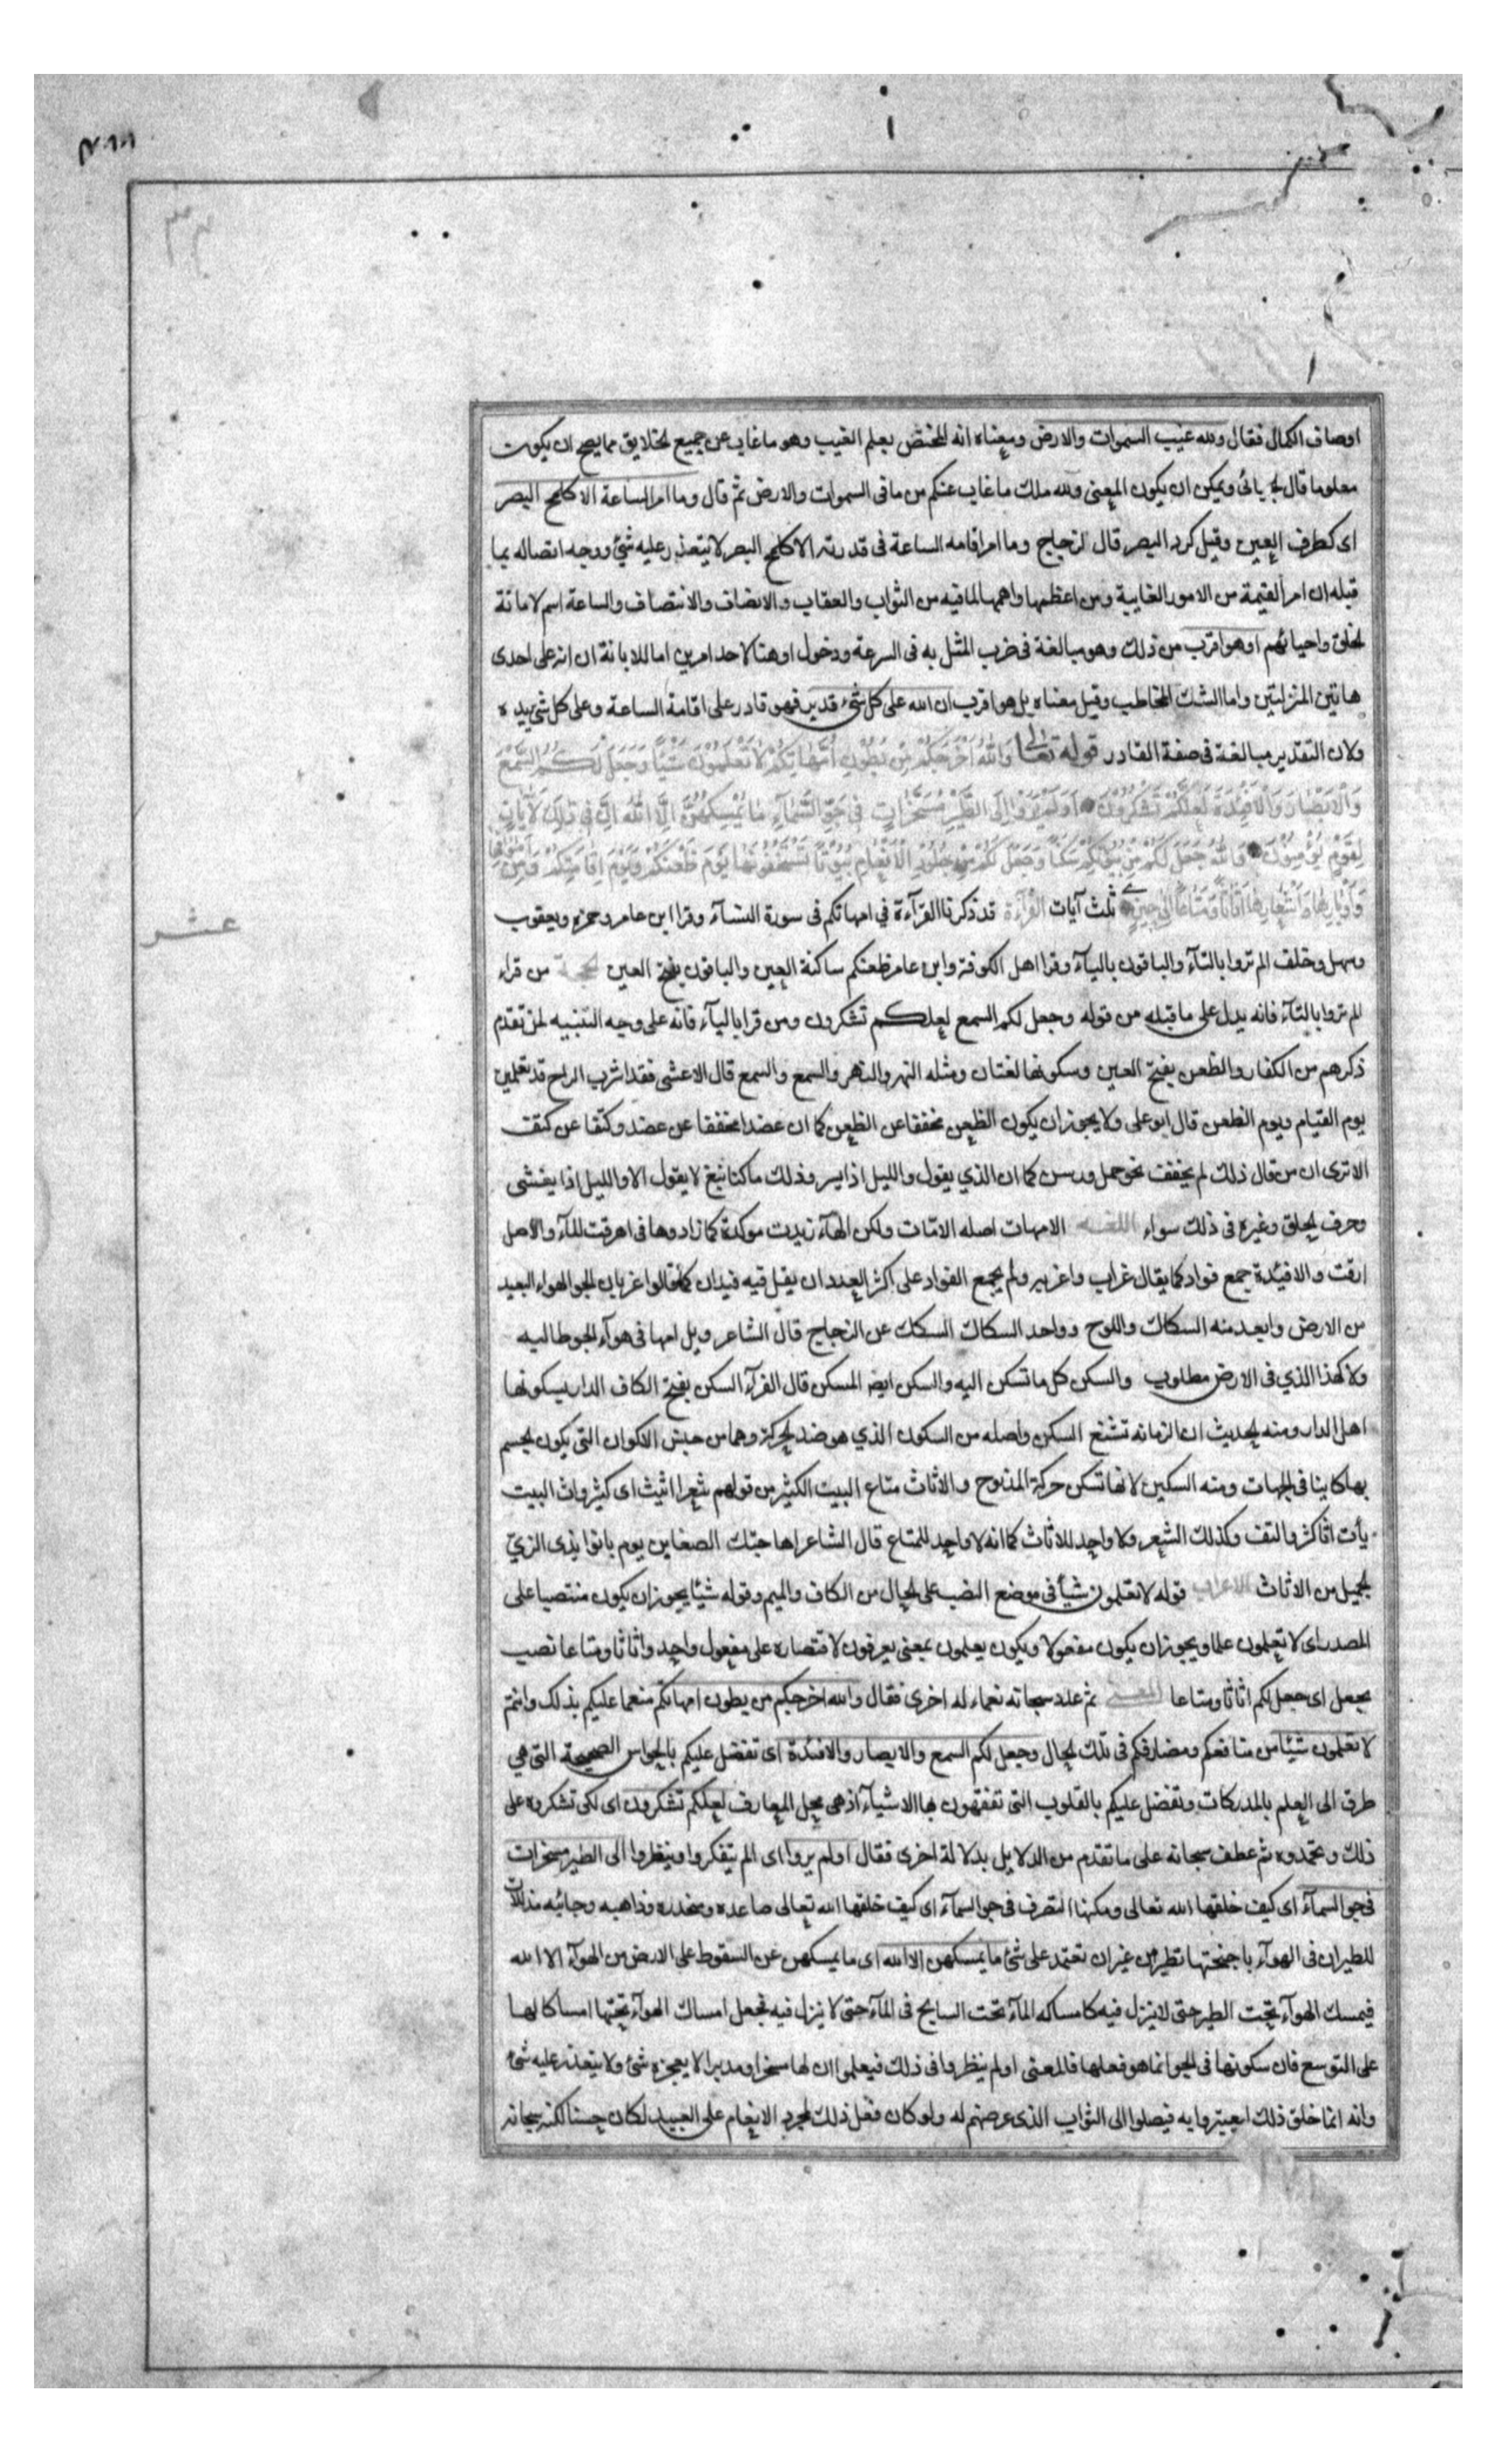 اوصاف الكمال فقال ولله غيب السموات والارض ومعناه انه المختص بعلم الغيب وهو ما غاب عن جميع الخلايق مما يصح ان يكون
معلوما قال الجبائى ويمكن ان يكون المعنى ولله ملك ما غاب عنكم من ما فى السموات والارض ثم قال وما امر الساعة الا كلمح البصر
اى كطرف العين وقيل كرد البصر قال الزجاج وما امر اقامه الساعة فى قدرته الا كلمح البصر لا يتعذر عليه شئ ووجه اتصاله بما
قبله ان امر القيمة من الامور الغايبة ومن اعظمها واهمها لما فيه من الثواب والعقاب والانصاف والانتصاف والساعة اسم لاماتة
الخلق واحيائهم او هو اقرب من ذلك وهو مبالغة فى ضرب المثل به فى السرعة ودخول او هنا لاحد امرين اما للابانة ان انه على احدى
هاتين المنزلتين واما الشك المخاطب وقيل معناه بل هو اقرب ان الله على كل شئ قدير فهو قادر على اقامة الساعة وعلى كل شئ يريده
ولان التقدير مبالغة فى صفة القادر قوله تعالى وَاللهُ اَخْرَجَكُمْ مِنْ بُطُونِ اُمَّهَاتِكُمْ لَا تَعْلَمُونَ شَيْئًا وَجَعَلَ لَكُمُ السَّمْعَ
وَالْاَبْصَارَ وَالْاَفْئِدَةَ لَعَلَّكُمْ تَشْكُرُونَ اَوَلَمْ يَرَوْا اِلَى الطَّيْرِ مُسَخَّرَاتٍ فِى جَوِّ السَّمَآءِ مَا يُمْسِكُهُنَّ اِلَّا اللهُ اِنَّ فِى ذَلِكَ لَاٰيَاتٍ
لِقَوْمٍ يُؤْمِنُونَ وَاللهُ جَعَلَ لَكُمْ مِنْ بُيُوتِكُمْ سَكَنًا وَجَعَلَ لَكُمْ مِنْ جُلُودِ الْاَنْعَامِ بُيُوتًا تَسْتَخِفُّونَهَا يَوْمَ ظَعْنِكُمْ وَيَوْمَ اِقَامَتِكُمْ وَمِنْ اَصْوَافِهَا
وَاَوْبَارِهَا وَاَشْعَارِهَا اَثَاثًا وَمَتَاعًا اِلَى حِينٍ ثلث آيات القرآءة قد ذكرنا القرآءة فى امهاتكم فى سورة النسآء وقرا ابن عامر وحمزه ويعقوب
عشر
وسهل وخلف الم تروا بالتآء والباقون باليآء وقرا اهل الكوفة وابن عامر ظعنكم ساكنة العين والباقون بفتح العين الحجة من قراء
الم تروا بالتآء فانه يدل على ما قبله من قوله وجعل لكم السمع لعلكم تشكرون ومن قرا باليآء فانه على وجه التنبيه لمن تقدم
ذكرهم من الكفار والظعن بفتح العين وسكونها لغتان ومثله النهر والنهر والسمع والسمع قال الاعشى فقد اشرب الراح قد تعلمين
يوم القيام ويوم الظعن قال ابو على ولا يجوز ان يكون الظعن مخففا عن الظعن كما ان عضدا مخففا عن عضد وكتفا عن كتف
الا ترى ان من قال ذلك لم يخفف نحو حمل ورسن كما ان الذي يقول والليل اذا يسر وذلك ما كنا نبغ لا يقول الا والليل اذا يغشى
وحرف الحلق وغيره فى ذلك سواء اللغــه الامهات اصله الامّات ولكن الهآء زيدت موكدة كما زادوها فى اهرقت المآء والاصل
ارقت والافئدة جمع فواد كما يقال غراب واغربه ولم يجمع الفواد على اكثر العدد ان يقل فيه فيدان كما قالوا غربان الجو الهواء البعيد
من الارض وابعد منه السكاك واللوح وواحد السكاك السكك عن الزجاج قال الشاعر ويل امها فى هوآء الجو طالبـه
ولا كهذا الذي فى الارض مطلوب والسكن كل ما تسكن اليه والسكن ايض المسكن قال الفرآء السكن بفتح الكاف الدار يسكونها
اهل الدار ومنه الحديث ان الرمانه تشبع السكن واصله من السكون الذي هو ضد الحركة وهما من جنس الاكوان التى يكون الجسم
بها كاينا فى الجهات ومنه السكين لانها تسكن حركة المذبوح والاثاث متاع البيت الكثير من قولهم شعر اثيث اى كثير واث البيت
يأت اثا كثر والتف وكذلك الشعر ولا واحد للاثاث كما انه لا واحد للمتاع قال الشاعر اهاجتك الضعاين يوم بانوا بذى الزيّ
الجميل من الاثاث الاعراب قوله لا تعلمون شيأ فى موضع النصب على الحال من الكاف والميم وقوله شيئا يجوز ان يكون منتصبا على
المصدر اى لا تعلمون علما ويجوز ان يكون مفعولا ويكون يعلمون بمعنى يعرفون لاقتصاره على مفعول واحد واثاثا ومتاعا نصب
بجعل اى جعل لكم اثاثا ومتاعا المعــنى ثم عدد سبحانه نعماء له اخرى فقال والله اخرجكم من بطون امهاتكم منعما عليكم بذلك وانتم
لا تعلمون شيئا من منافعكم ومضاركم فى تلك الحال وجعل لكم السمع والابصار والافئدة اى تفضل عليكم بالحواس الصحيحة التى هي
طرق الى العلم بالمدركات وتفضل عليكم بالقلوب التى تفقهون بها الاشيآء اذ هى محل المعارف لعلكم تشكرون اى لكى تشكروه على
ذلك وتحمدوه ثم عطف سبحانه على ما تقدم من الدلايل بدلالة اخرى فقال اولم يروا اى الم يتفكروا وينظروا الى الطير مسخرات
فى جو السمآء اى كيف خلقها الله تعالى ومكنها التصرف فى جو السمآء اى كيف خلقها الله تعالى صاعده ومنحدره وذاهبه وجائيه مذللات
للطيران فى الهوآء باجنحتها تطير من غير ان تعتمد على شئ ما يمسكهن الا الله اى ما يمسكهن عن السقوط على الارض من الهوآء الا الله
فيمسك الهوآء تحت الطير حتى لا ينزل فيه كامساكه المآء تحت السابح فى المآء حتى لا ينزل فيه فجعل امساك الهوآء تحتها امساكا لهـا
على التوسع فان سكونها فى الجو انما هو فعلها فالمعنى اولم ينظروا فى ذلك فيعلموا ان لها مسخرا ومدبرا لا يعجزه شئ ولا يتعذر عليه شئ
وانه انما خلق ذلك ليعبتروا به فيصلوا الى الثواب الذى عرضهم له ولو كان فعل ذلك لمجرد الانعام على العبيد لكان حسنا لكنه سبحانه